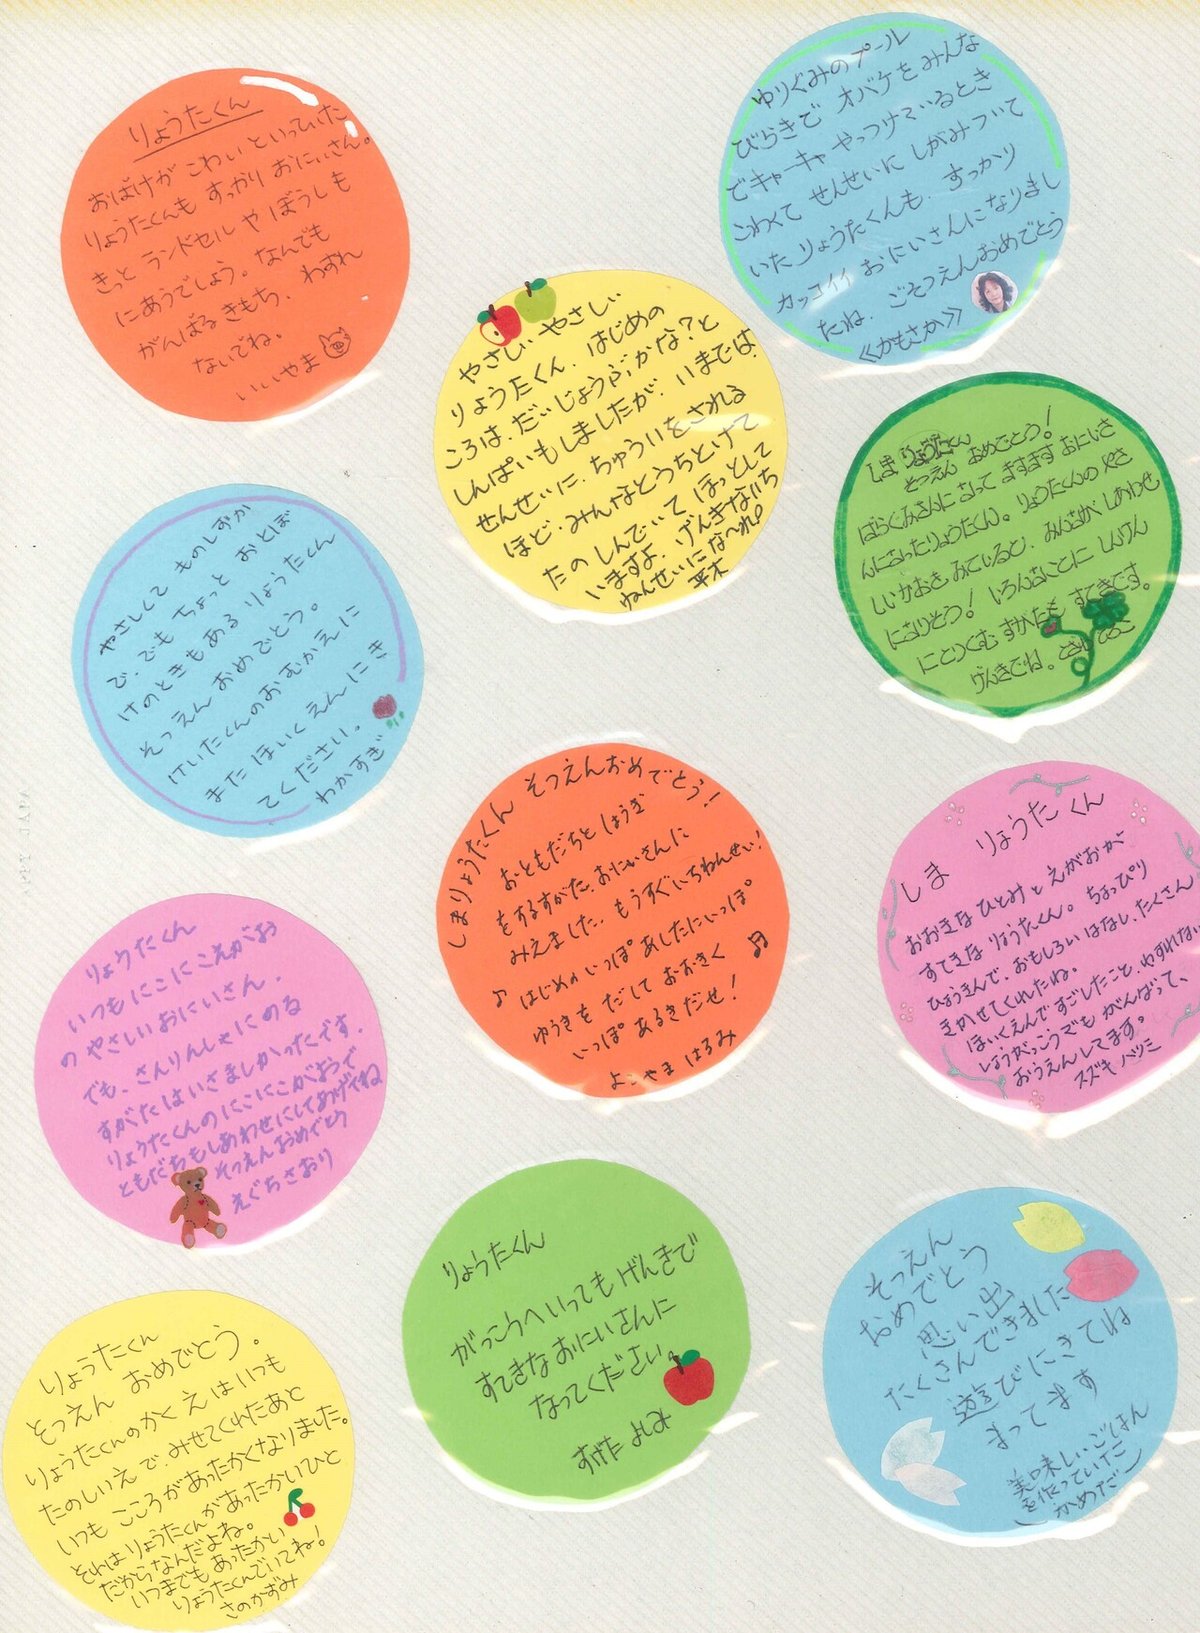 りょうたくん
おばけが こわい といっていた
りょうたくんも すっかり おにいさん。
きっと ランドセル や ぼうしも
にあうでしょう。なんでも
がんばる きもち、わすれ
ないでね。
いいやま
ゆりぐみのプール
びらきで オバケを みんな
でキャーキャー やっつけているとき
こわくて せんせいに しがみついて
いた りょうたくんも、すっかり
カッコイイ おにいさんになりまし
たね. ごそつえんおめでとう
≪かもさか≫
やさしい やさしい
りょうたくん、はじめの
ころは、だいじょうぶかな?と
しんぱいもしましたが、いまでは、
せんせいに、ちゅういをされる
ほど、みんなとうちとけて
たのしんでいて ほっとして
いますよ、げんきな1ち
ねんせいにな〜れ!
平木
しま りょうたくん
そつえん おめでとう!
ばらぐみさんになって ますます おにいさ
んになったりょうたくん。りょうたくんの やさ
しいかおを みていると、みんなが しあわせ
になりそう! いろんなことに しんけん
にとりくむ すがたも すてきです。
げんきでね。
やさしくて ものしずか
で、でも ちょっと おとぼ
けのときもある りょうたくん
そつえん おめでとう。
けいたくんのおむかえに
また ほいくえんに き
てください。
わかすぎ
しまりょうたくん そつえんおめでとう!
おともだちと しょうぎ
をするすがた、おにいさんに
みえました。もうすぐいちねんせい!
♪はじめの いっぽ あしたにいっぽ
ゆうきを だして おおきく
いっぽ あるきだせ! ♫
よこやま はるみ
しま りょうた くん
おおきな ひとみと えがおが
すてきな りょうたくん。ちょっぴり
ひょうきんで、おもしろい はなし、たくさん
きかせてくれたね。
ほいくえんで すごしたこと、わすれない
しょうがっこうでも がんばって、
おうえんしてます。
スズキ ハツミ
りょうたくん
いつもにこにこえがお
の やさしいおにいさん.
でも、さんりんしゃにのる
すがたは いさましかったです.
りょうたくんのにこにこがおで
ともだちもしあわせにしてあげてね
そつえんおめでとう
えぐちさおり
りょうたくん
がっこうへいっても げんきで
すてきな おにいさんに
なってください。
すげた よしみ
そつえん
おめでとう
思い出
たくさんできました
遊びにきてね
まってます
美味しいごはん
を作っていた
かめだ
りょうたくん
そつえん おめでとう。
りょうたくんのかく えは いつも
たのしいえ で、みせてくれたあと
いつも こころがあったかくなりました。
それは りょうたくんが あったかいひと
だからなんだよね。
いつまでも あったかい
りょうたくんでいてね!
さのかずみ